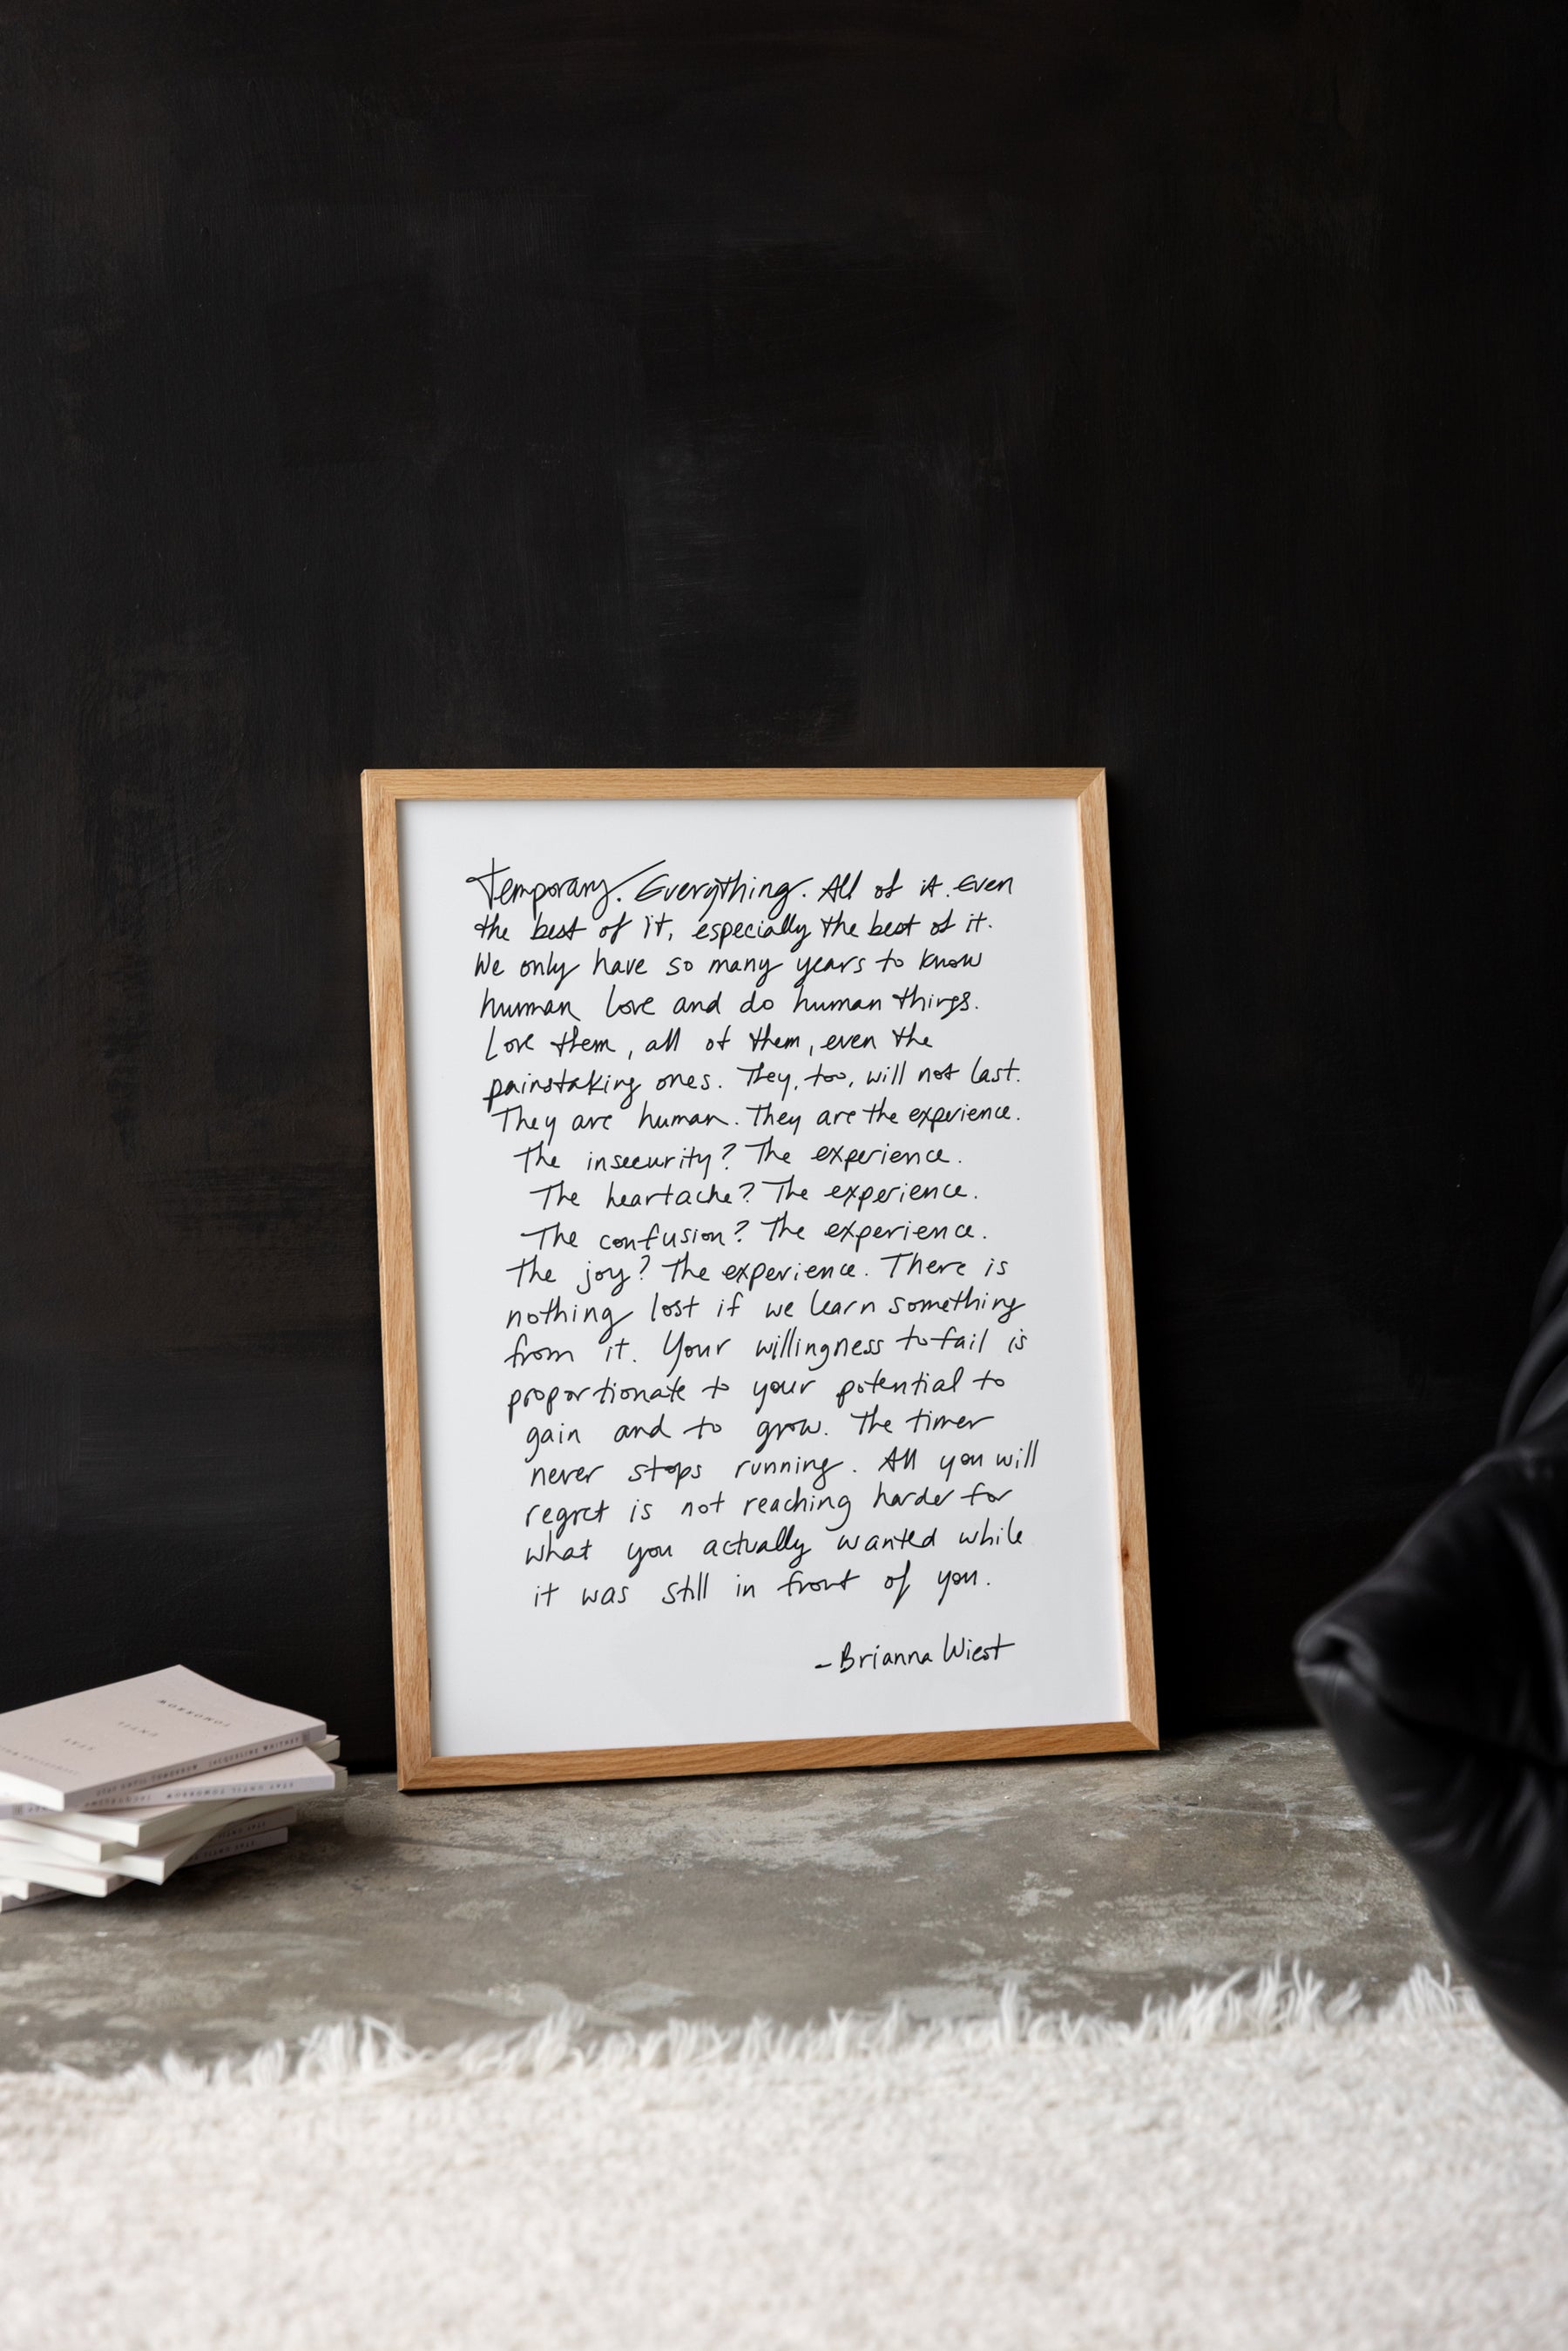 Temporary. Everything. All of it. Even
the best of it, especially the best of it.
We only have so many years to know
human love and do human things.
Love them, all of them, even the
painstaking ones. They, too, will not last.
They are human. They are the experience.
The insecurity? The experience.
The heartache? The experience.
The confusion? The experience.
The joy? The experience. There is
nothing lost if we learn something
from it. Your willingness to fail is
proportionate to your potential to
gain and to grow. The timer
never stops running. All you will
regret is not reaching harder for
what you actually wanted while
it was still in front of you.
- Brianna Wiest
TOMORROW
UNTIL
STAY
STAY UNTIL TOMORROW
STAY UNTIL TOMORROW